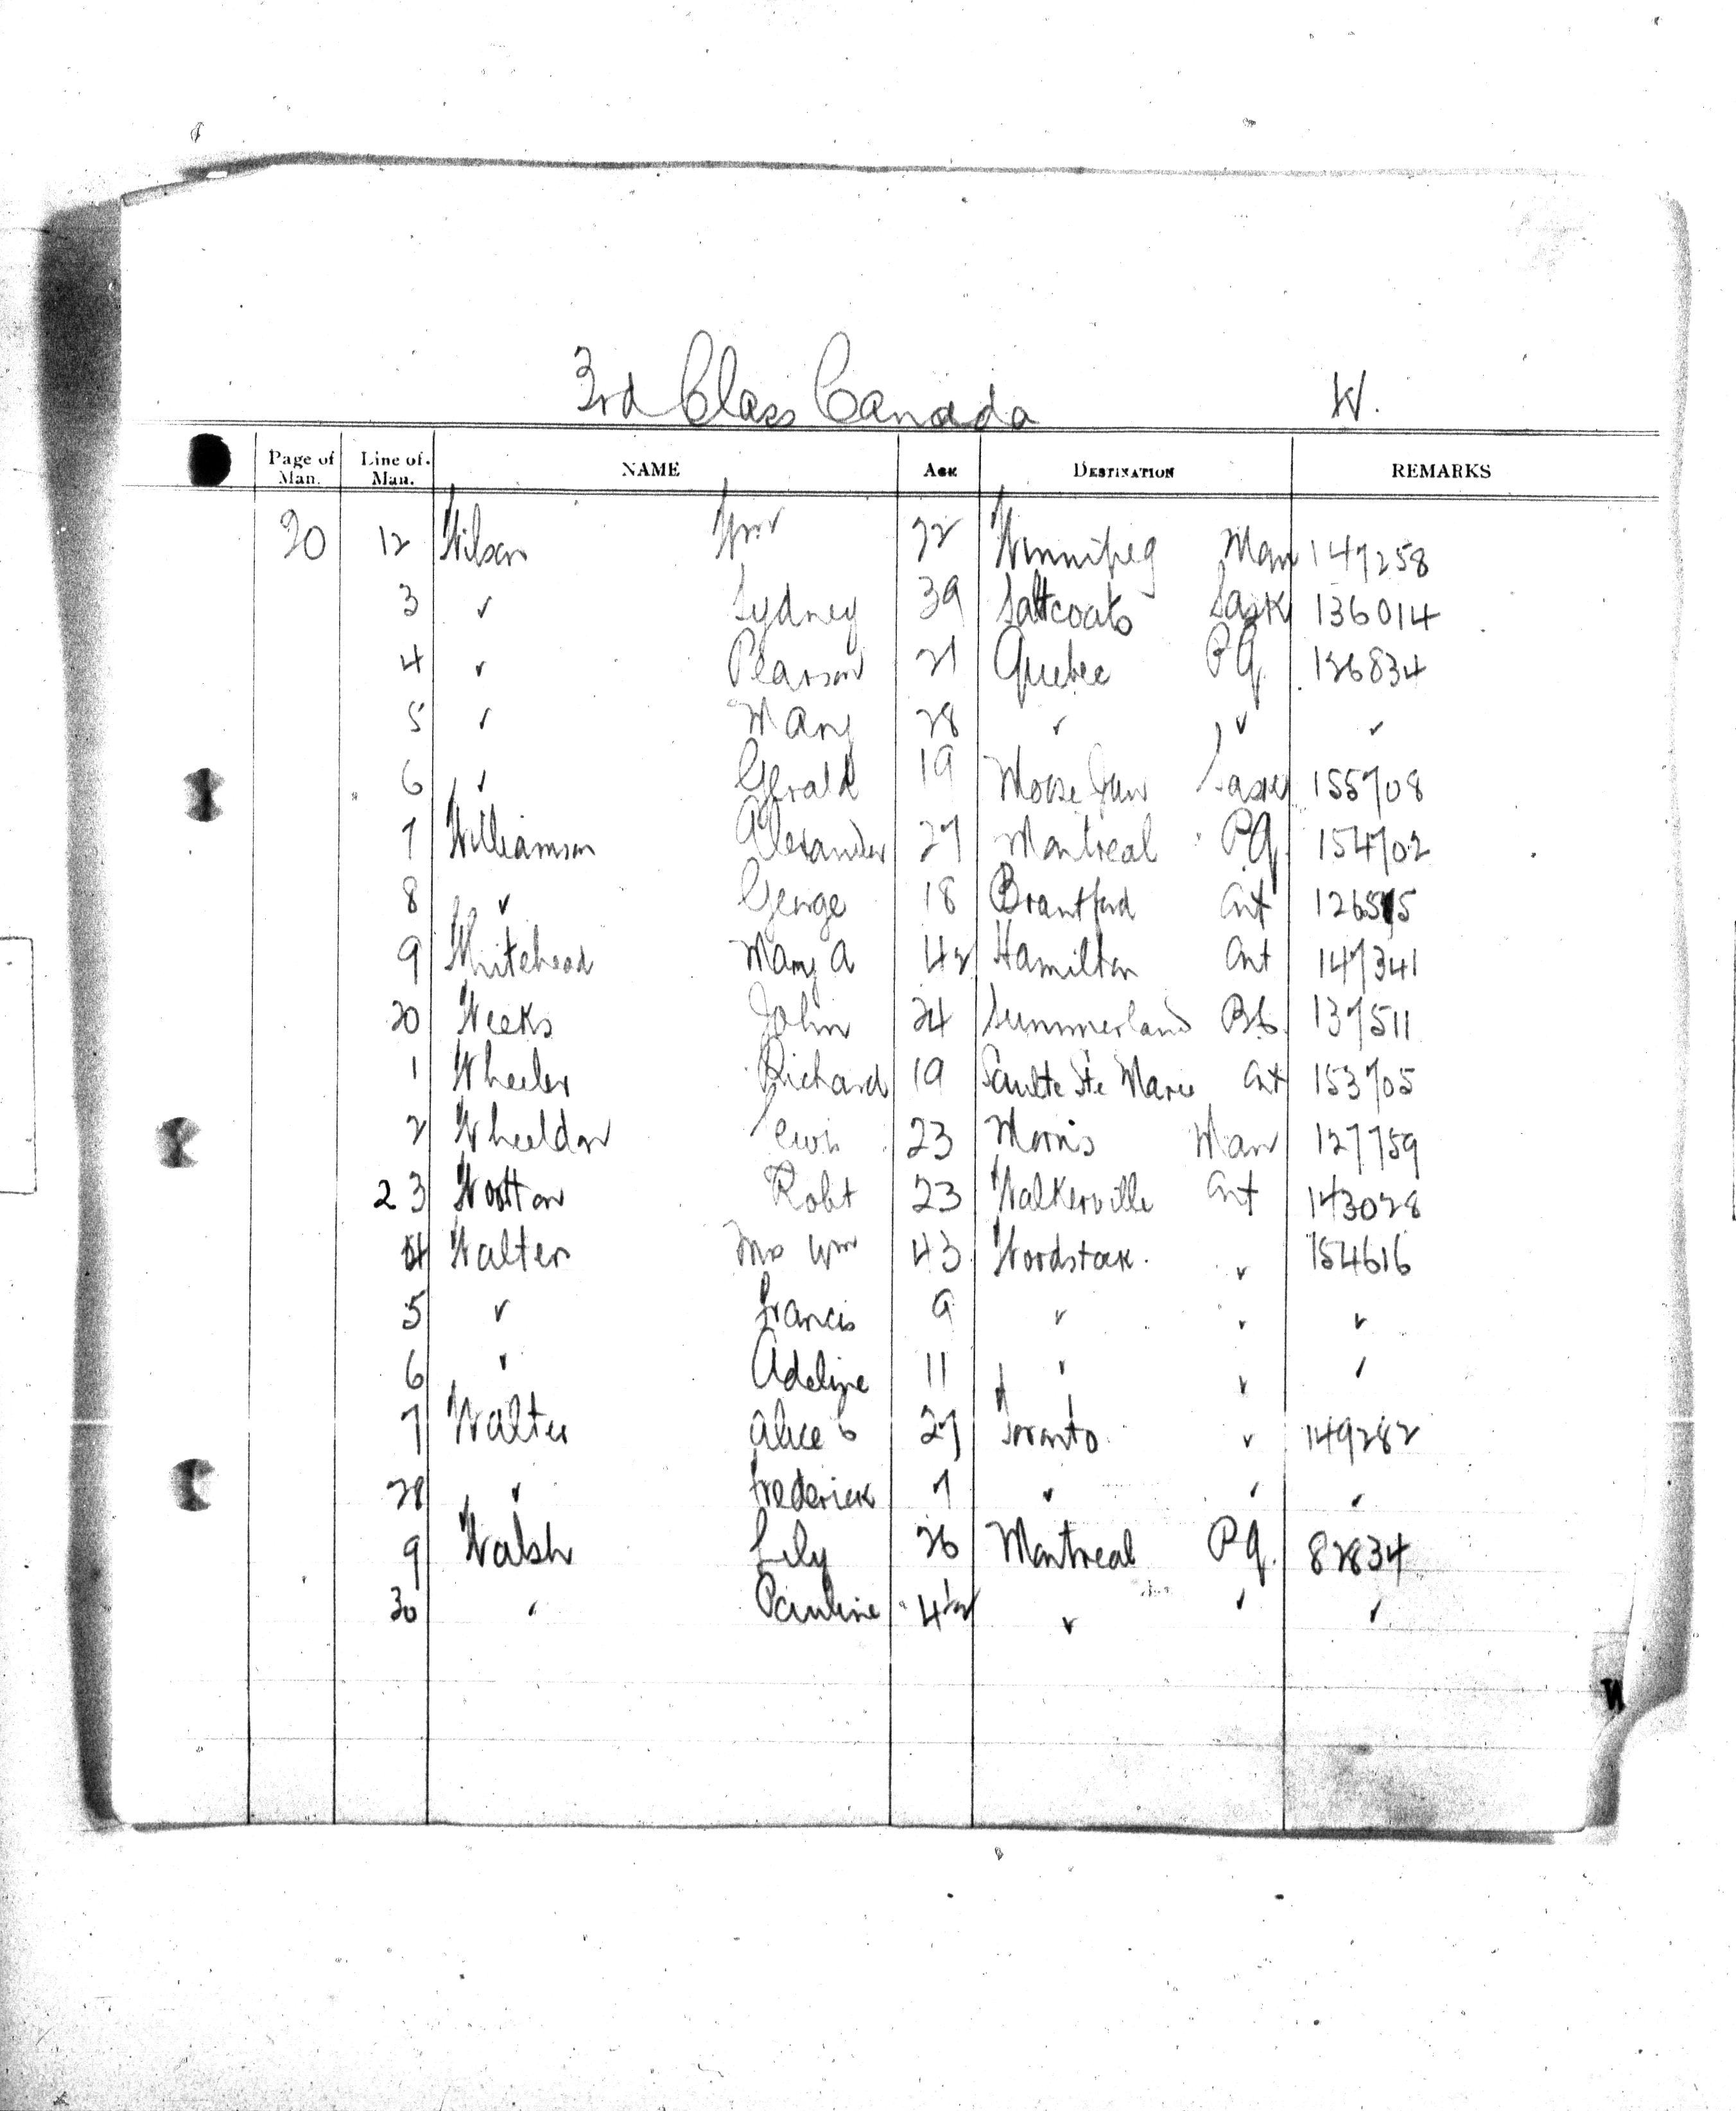 3rd Class Canada W.
Page of Man. Line of Man. NAME AGE DESTINATION REMARKS
20 12 Wilson Wm 22 Winnipeg Man 147258
3 " Sydney 39 Saltcoats Sask 136014
4 " Pearson 21 Quebec PQ 126834
5 " Mary 28 " " "
6 " Gerald 19 Moose Jaw Sask 155708
7 Williamson Alexander 27 Montreal PQ. 154702
8 " George 18 Brantford Ont 126515
9 Whitehead Mary A 42 Hamilton Ont 147341
20 Weeks John 24 Summerland BC. 137511
1 Wheeler Richard 19 Saulte Ste Marie Ont 153705
2 Wheeldon Lewis 23 Morris Man 127759
23 Wootton Robt 23 Walkerville Ont 143028
4 Walter Mrs Wm 43 Woodstock. " 154616
5 " Francis 9 " " "
6 " Adeline 11 " " "
7 Walter Alice C 27 Toronto " 149282
28 " Frederick 7 " " "
9 Walsh Lily 26 Montreal PQ. 82834
30 " Pauline 4½ " " "
W